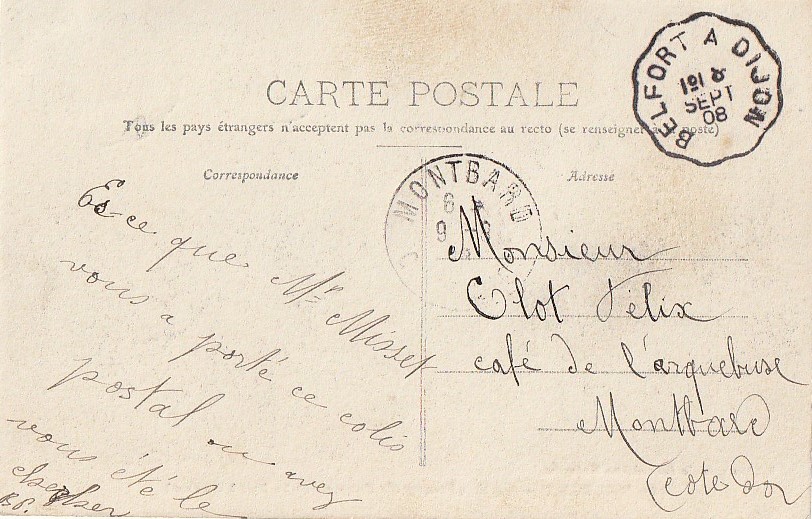 CARTE POSTALE
Tous les pays étrangers n'acceptent pas la correspondance au recto (se renseigner à la poste)
Correspondance
Adresse
BELFORT A DIJON
SEPT
08
MONTBARD
6
9
Es-ce que Mr Misset
vous a porté ce colis
postal ou avez
vous été le
chercher
Monsieur
Clot Félix
café de l'arquebuse
Montbard
Cote d'or